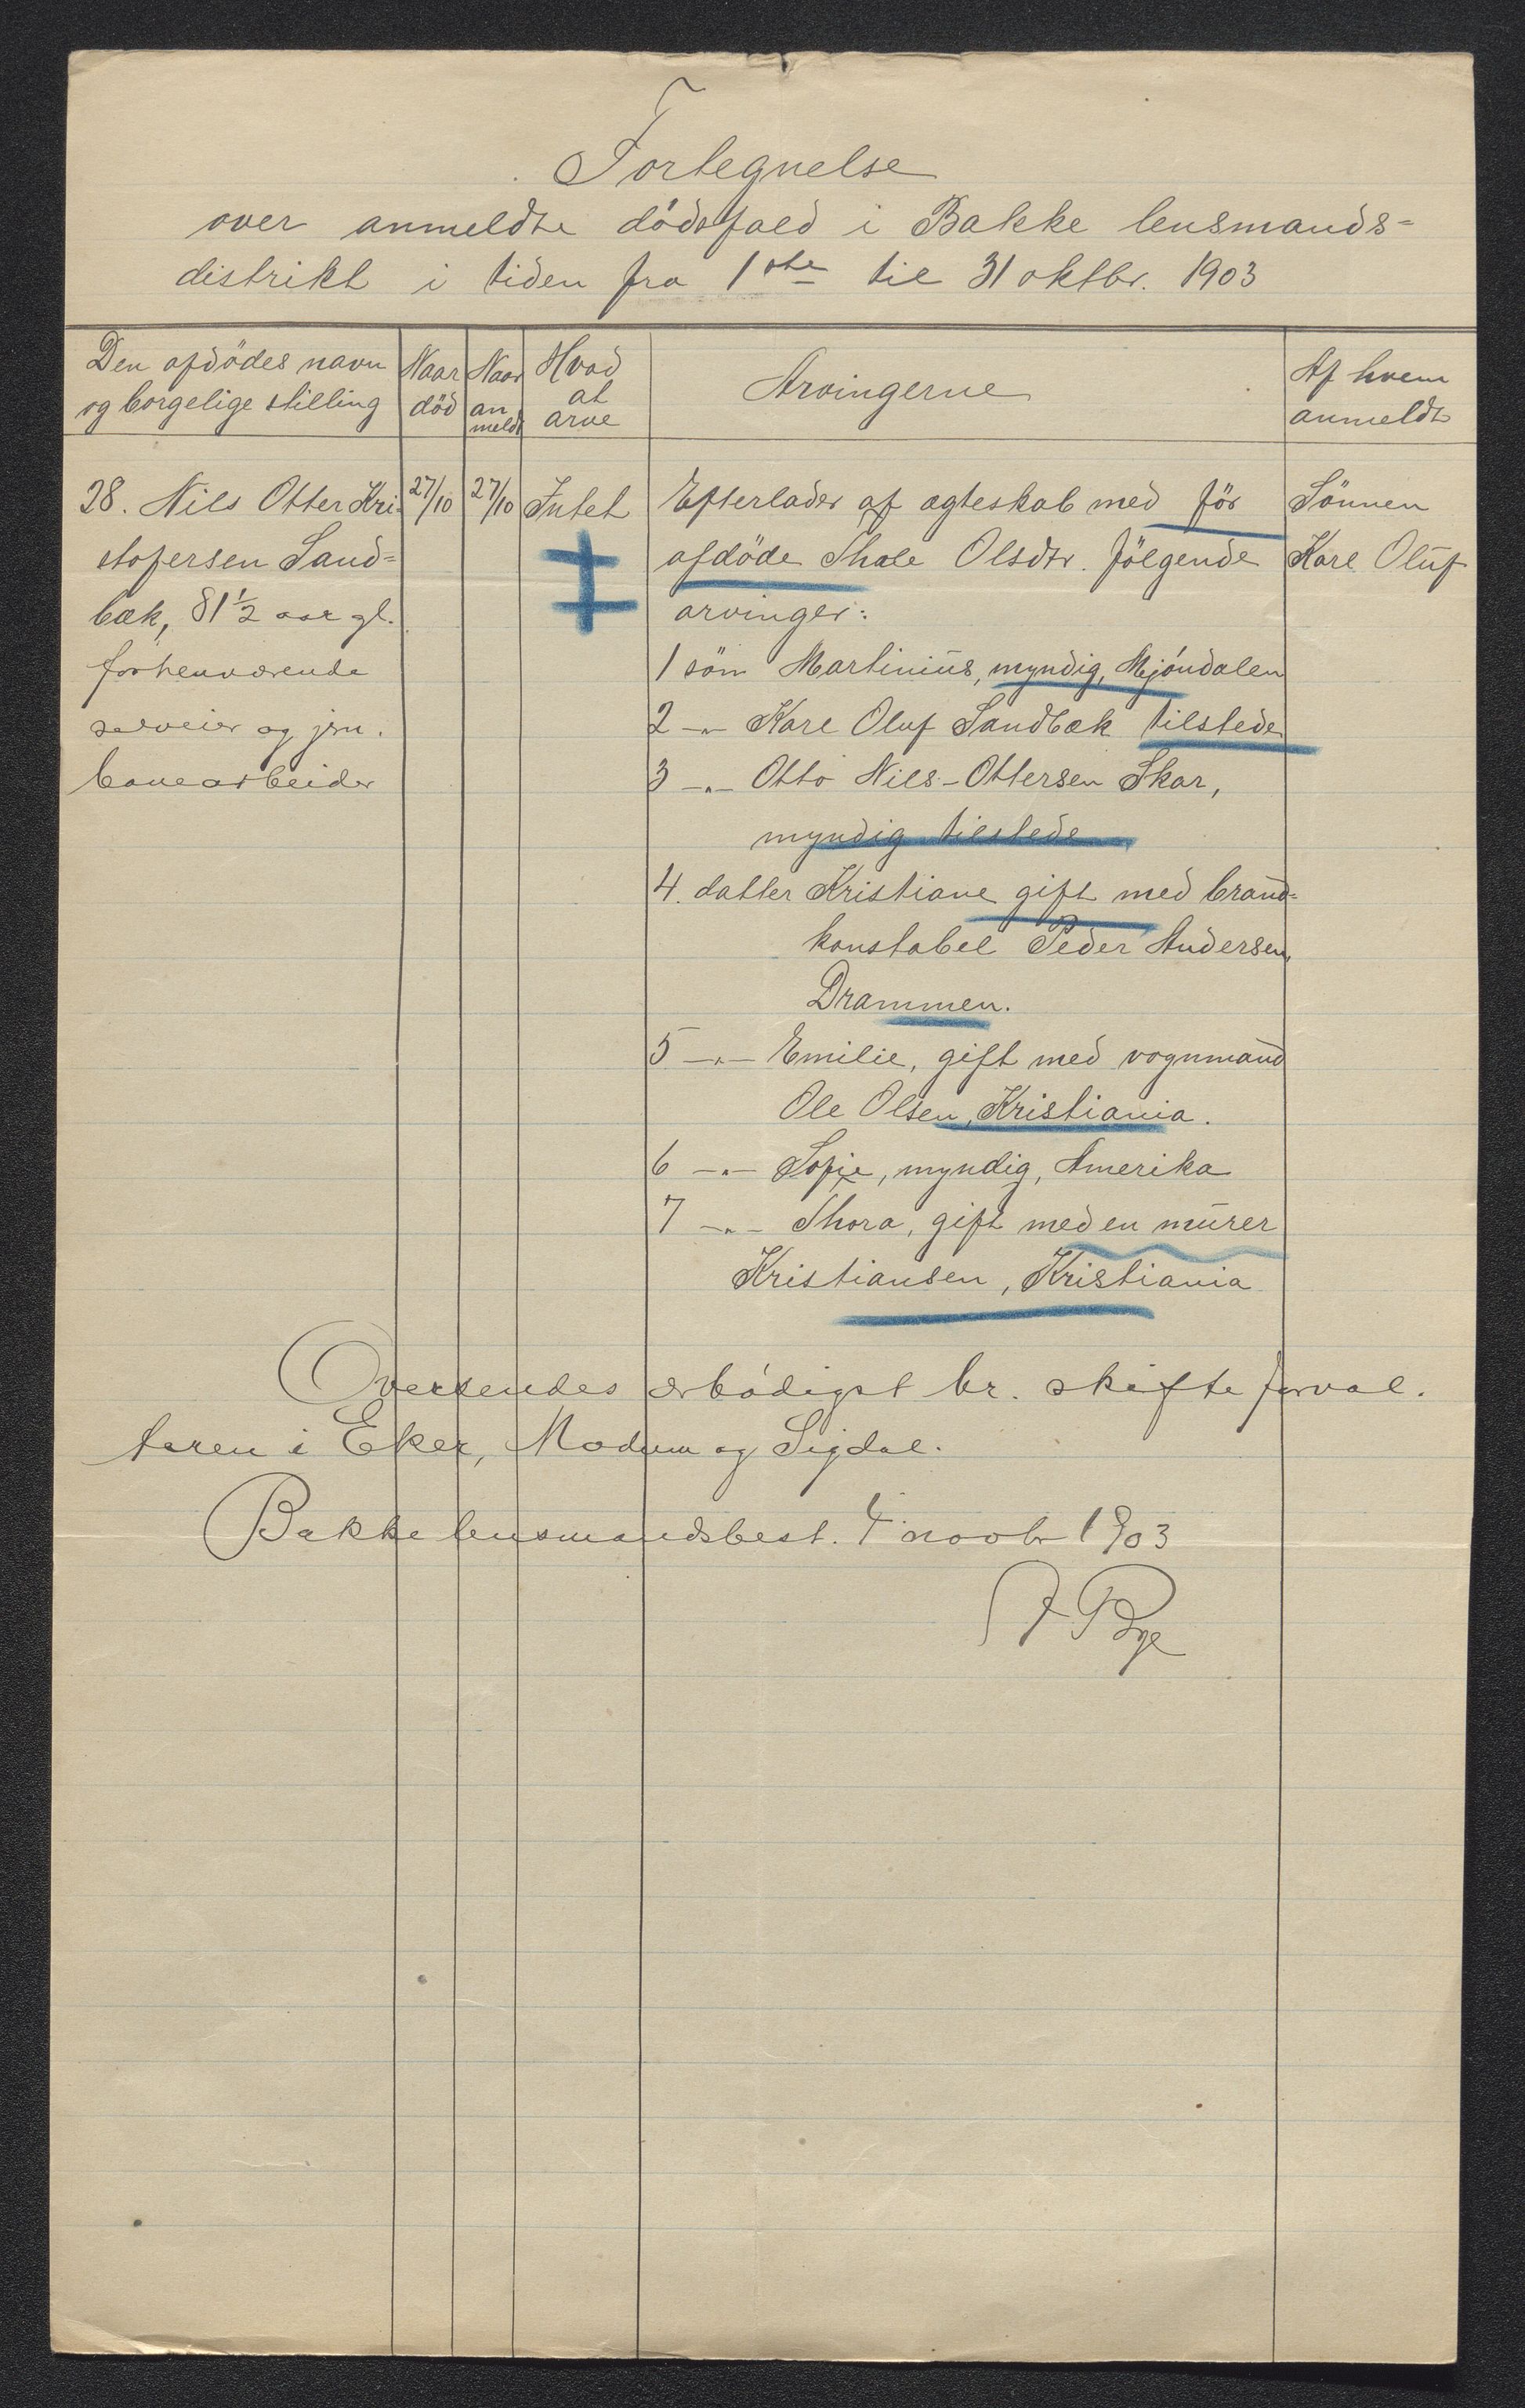 Fortegnelse
over anmeldte dödsfald i Bakke lensmands-
distrikt i tiden fra 1ste til 31 oktbr. 1903
Den afdödes navn
og borgelige stilling
Naar
död
Naar
an
meldt
Hvad
at
arve
Arvingerne
Af hvem
anmeldt
28. Nils Otter Kri-
stofersen Sand-
bæk, 81 1/2 aar gl.
forhenværende
selveier og jern.
banearbeider
27/10
27/10
Intet
Efterlader af ægteskab med för
afdöde Thale Olsdtr. fölgende
arvinger:
1 sön Martinius, myndig, Mjöndalen
2 -"- Karl Oluf Sandbæk tilstede
3 -"- Otto Nils-Ottersen Skar,
myndig tilstede
4. datter Kristiane gift med brand-
konstabel Peder Andersen,
Drammen.
5 -"- Emilie, gift med vognmand
Ole Olsen, Kristiania.
6 -"- Sofie, myndig, Amerika
7 -"- Thora, gift med en murer
Kristiansen, Kristiania
Sönnen
Karl Oluf
Oversendes ærbödigst hr. skifteforval.
teren i Eker, Modum og Sigdal.
Bakke lensmandsbest. 4 novbr 1903